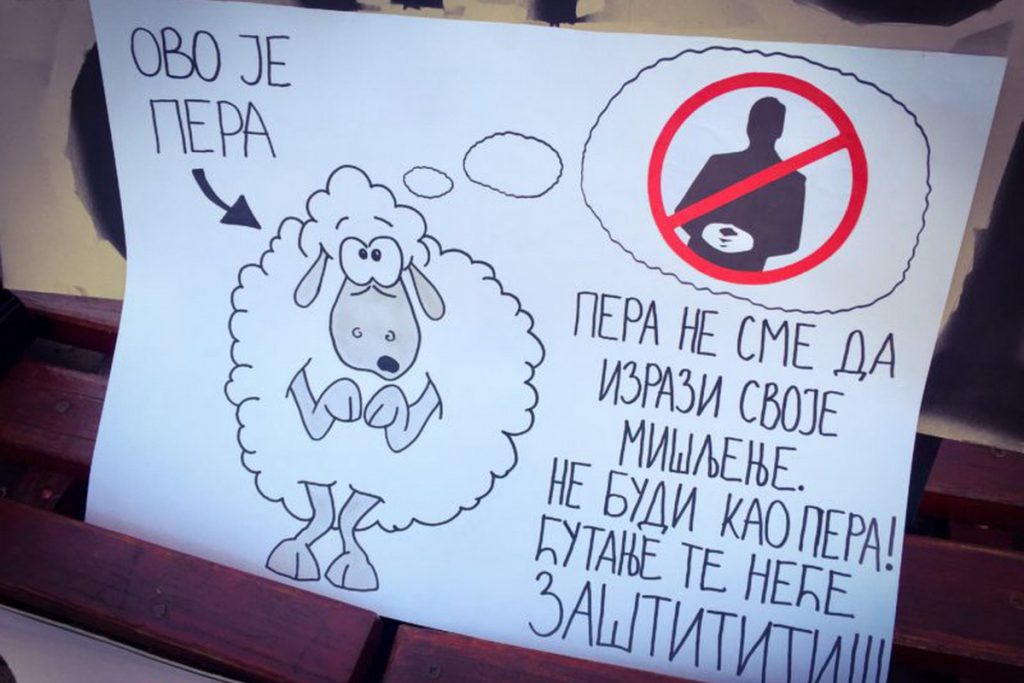 ОВО ЈЕ
ПЕРА
ПЕРА НЕ СМЕ ДА
ИЗРАЗИ СВОЈЕ
МИШЉЕЊЕ.
НЕ БУДИ КАО ПЕРА!
ЋУТАЊЕ ТЕ НЕЋЕ
ЗАШТИТИТИ!!!